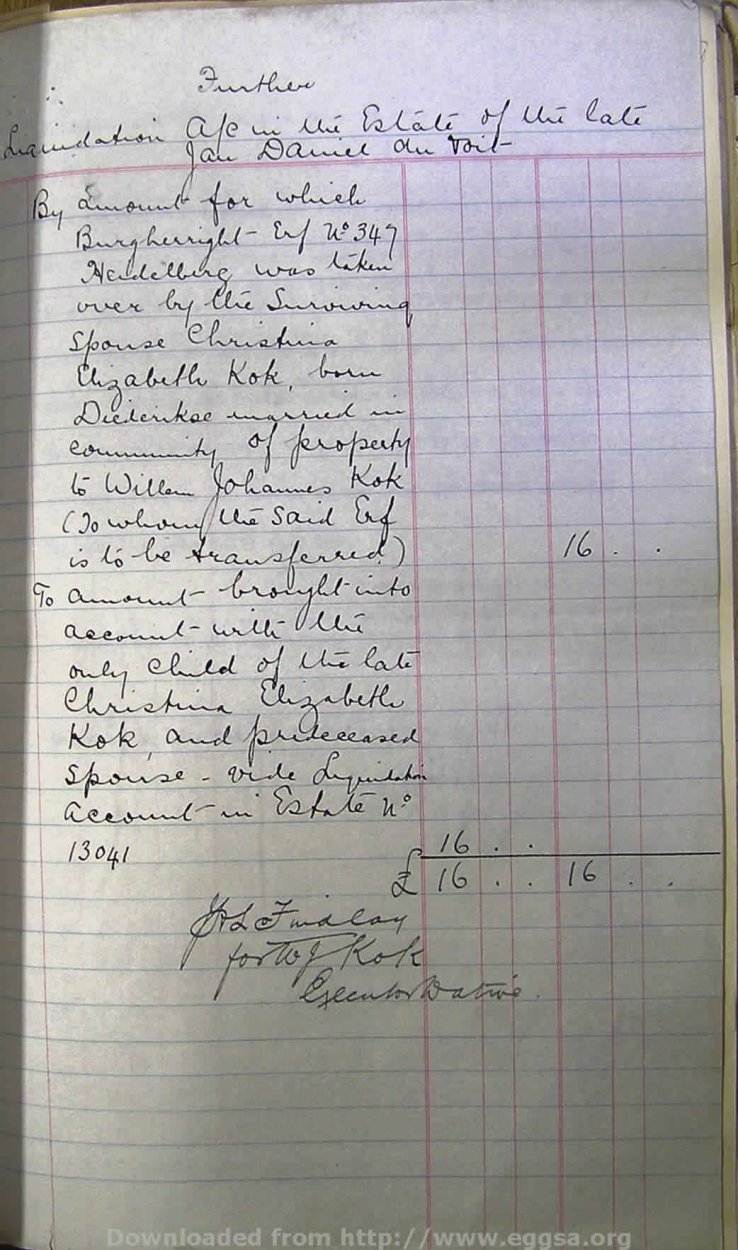 Further
Liquidation A/c in the Estate of the late
Jan Daniel du Toit
By amount for which
Burgherright Erf No 347
Heidelberg was taken
over by the Surviving
Spouse Christina
Elizabeth Kok, born
Diederikse married in
community of property
to Willem Johannes Kok
(To whom the said Erf
is to be transferred) 16 . .
To amount brought into
account with the
only child of the late
Christina Elizabeth
Kok, and predeceased
Spouse - vide Liquidation
Account in Estate No
13041 16 . .
£ 16 . . 16 . .
Findlay
for W J Kok
Executor Dative.
Downloaded from http://www.eggsa.org